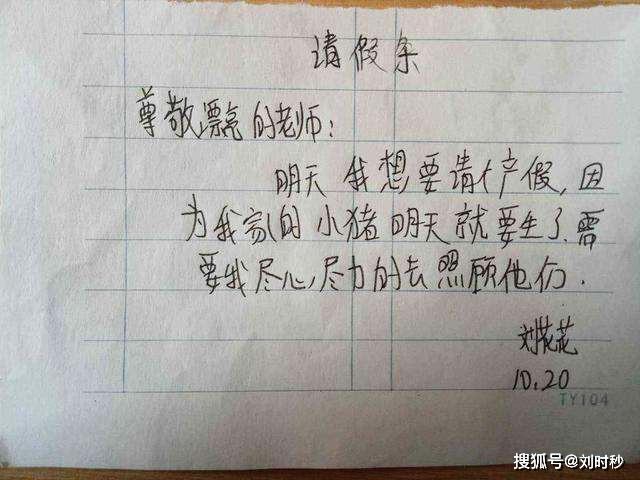 请假条
尊敬漂亮的老师：
明天我想要请个产假，因
为我家的小猪明天就要生了、需
要我尽心尽力的去照顾他们.
刘花花
10.20
TY104
搜狐号@刘时秒